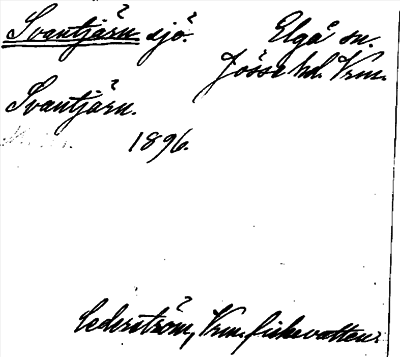 Svantjärn sjö.
Elgå sn.
Jösse hd. Vrm.
Svantjärn.
1896.
Cederström, Vrm. fiskevatten.